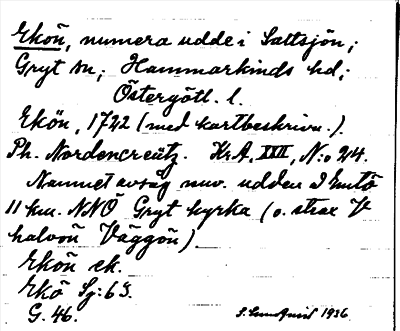 Ekön, numera udde i Saltsjön;
Gryt sn; Hammarkinds hd;
Östergötl. l.
Ekön, 1722 (med kartbeskrivn.).
Ph. Nordencreütz. Kr.A. XXII, N:o 24.
Namnet avsåg nuv. udden
11 km. NNÖ Gryt kyrka (o. strax V
halvön Väggön)
Ekön ek.
Ekö Sj: 63.
G. 46.
1926